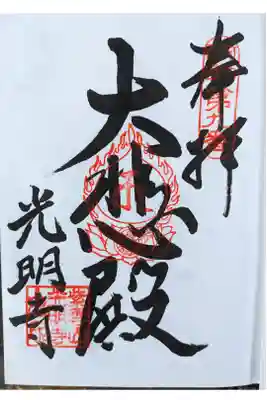 奉拝
大悲殿
光明寺